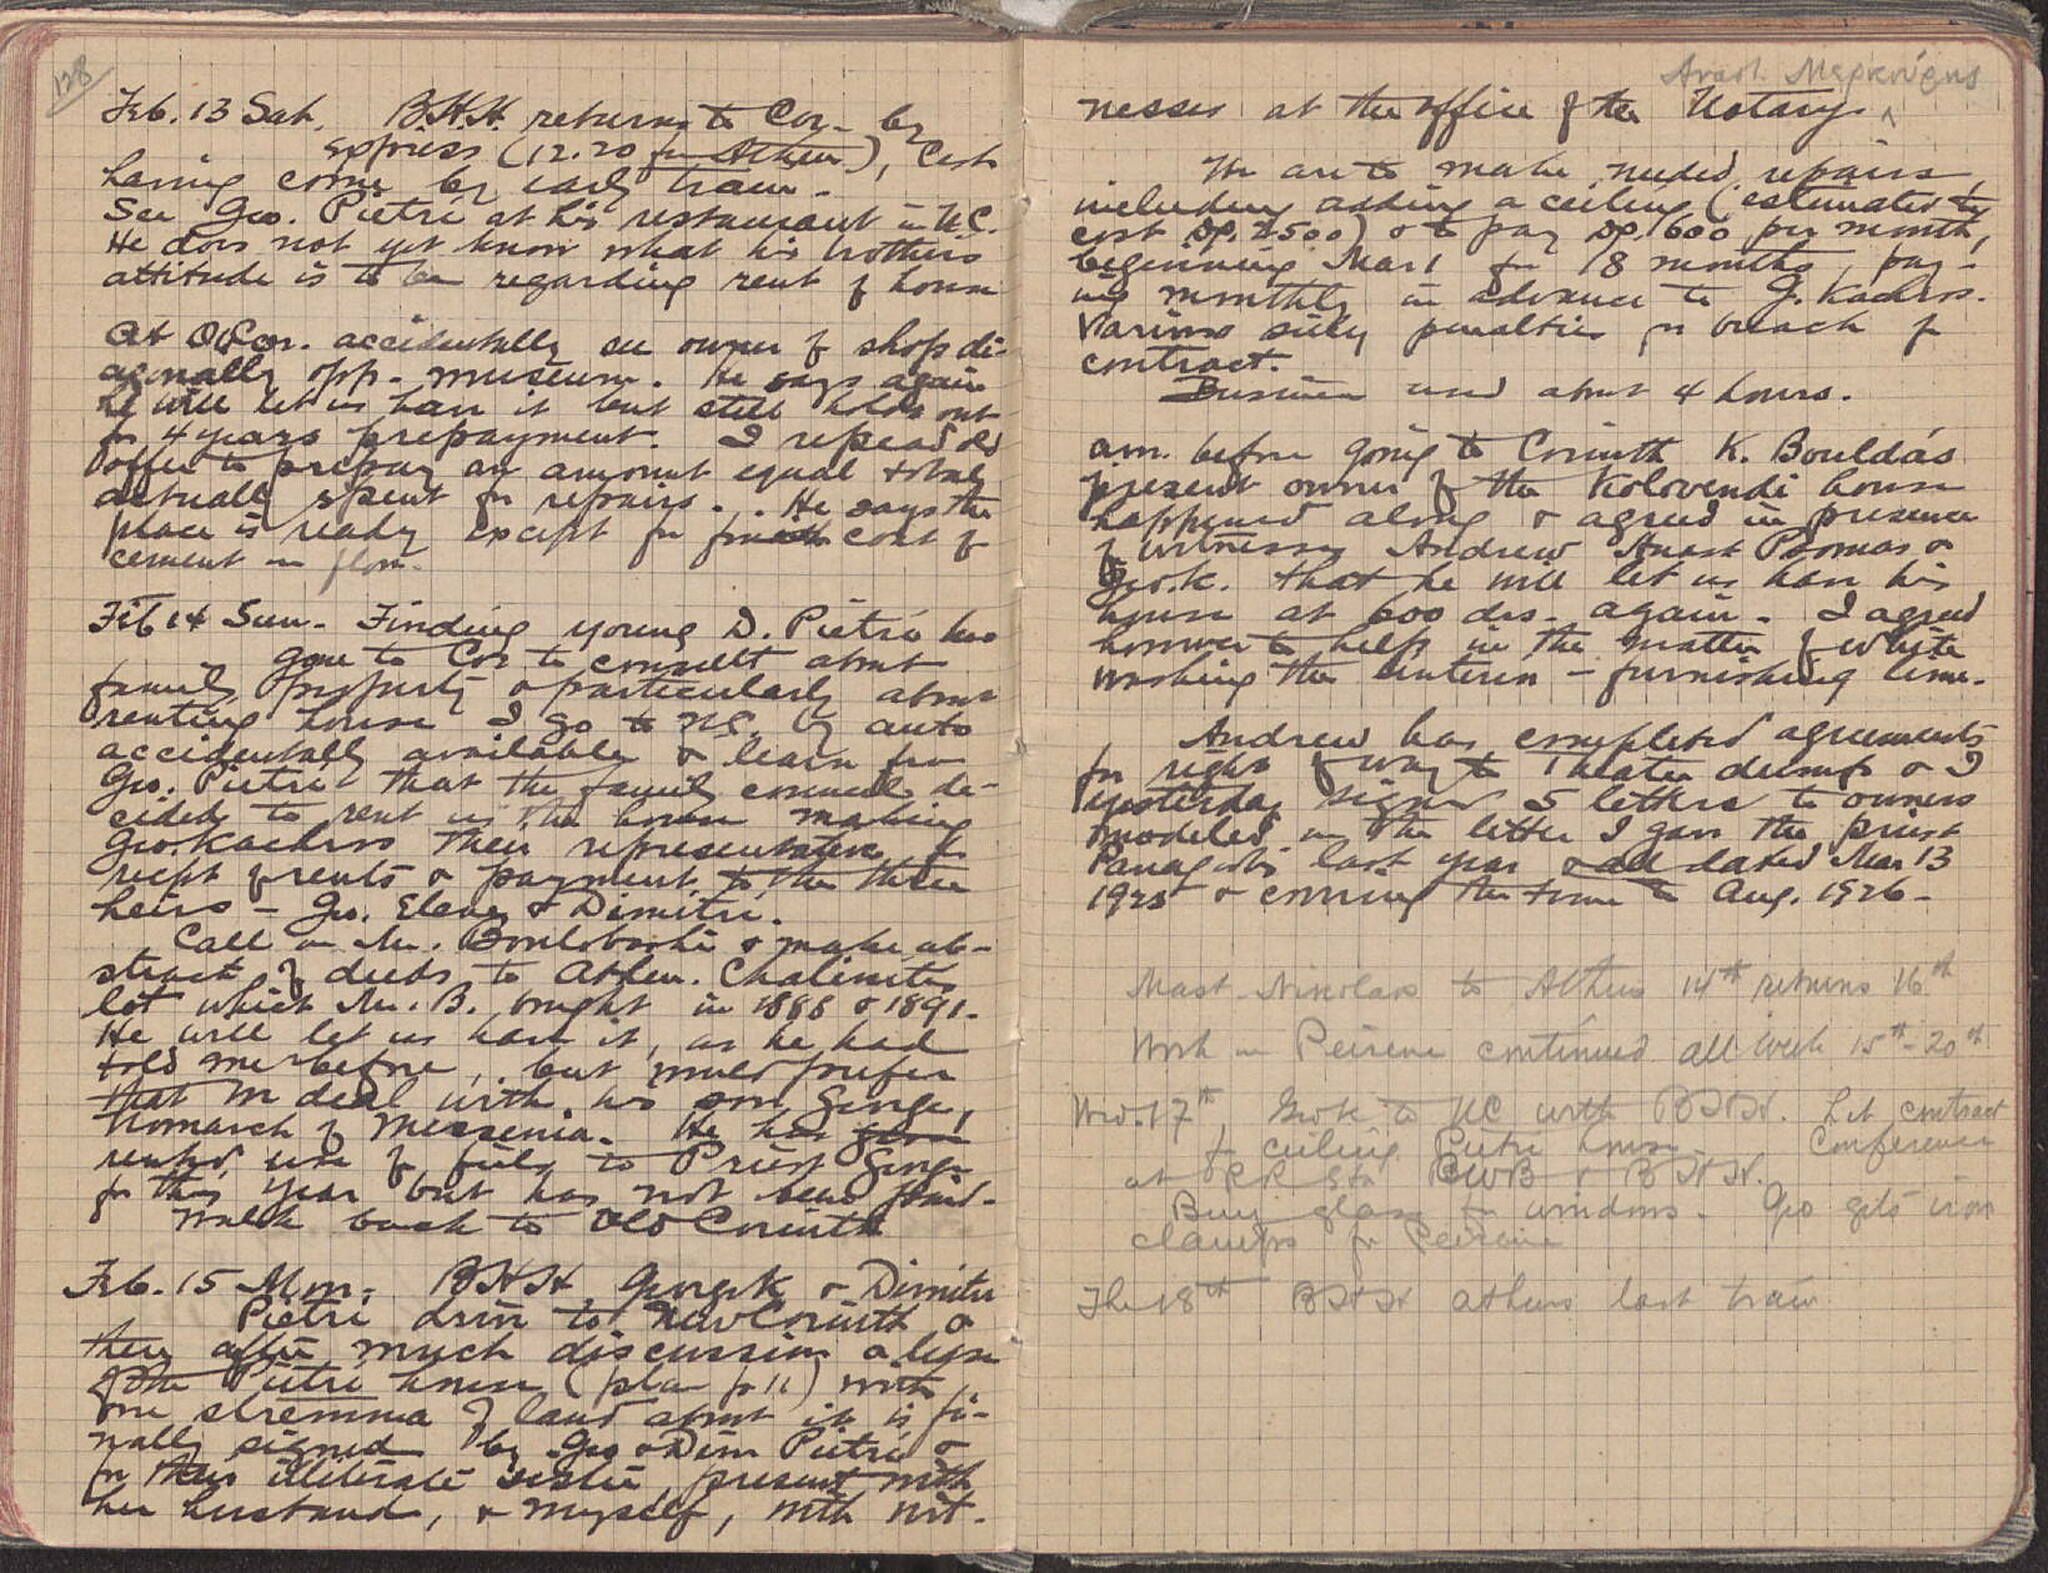 128
Feb. 13 Sat. B.H.H. returns to Cor. by
express (12.20 from Athens),
having come by early train.
See Geo. Pietri at his restaurant in N.C.
He does not yet know what his brothers
attitude is to be regarding rent of house
At O. Cor. accidentally see owner of shop di-
agonally opp. museum. He says again
he will let us have it but still holds out
for 4 years prepayment. I repeat old
offer to prepay an amount equal total
actually spent for repairs. . He says the
place is ready except for finish coat of
cement on floor.
Feb 14 Sun. Finding young D. Pietri has
gone to Cor to consult about
family property & particularly about
renting house I go to N.C. by auto
accidentally available & learn from
Geo. Pietri that the family council de-
cided to rent us the house making
Geo. Kachros their representative for
recpt of rents & payment to the three
heirs – Geo. Eleny & Dimitri.
Call on Mr. Boulobashi & make ab-
stract of deeds to Athen. Chalimitis
lot which Mr. B. bought in 1888 & 1891.
He will let us have it, as he had
told me before, but would prefer
that we deal with his son George,
Nomarch of Messenia. He has
rented use of field to Priest George
for this year but has not been paid.
Walk back to Old Corinth
Feb. 15 Mon. BHH, George K & Dimitri
Pietri drive to New Corinth &
there after much discussion a lease
of the Pietri house (plan p 11) with
one stremma of land about it is fi-
nally signed by Geo & Dim Pietri &
for their illiterate sister, present with
her husband, & myself, with wit-
nesses at the office of the Notary ^
We are to make needed repairs,
including adding a ceiling (estimated to
cost Dr. 2500) & to pay Dr. 600 per month,
beginning Mar 1 for 18 months, pay-
ing monthly in advance to G. Kachros.
Various silly penalties for breach of
contract.
Business used about 4 hours.
a.m. before going to Corinth K. Bouldás
present owner of the Kolovendi house
happened along & agreed in presence
of witnesses Andrew, Anast Psomas &
Geo. K. that he will let us have his
house at 600 drs. again. I agreed
however to help in the matter of white
washing the interior – furnishing lime.
Andrew has completed agreements
for right of way to Theater dump & I
yesterday signed 5 letters to owners
modeled on the letter I gave the priest
Panag last year & all dated Mar 13
1925 & covering the time to Aug. 1926.
Mast. Nikolas to Athens 14th returns 16th
Work in Peirene continued all week 15th–20th
Wed. 17th, Geo K to NC with BHH. Let contract
for ceiling Pietri house. Conference
at RR Sta CWB & BHH.
Buy glass for windows. Geo gets iron
clamps for Peirene
Th. 18th BHH Athens last train